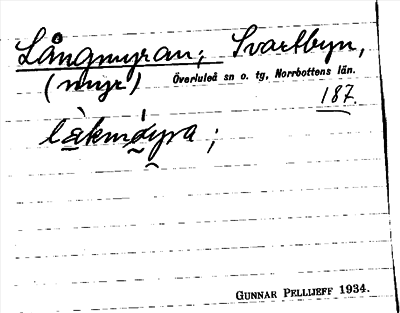 Långmyran; Svartbyn,
(myr) Överluleå sn o. tg, Norrbottens län.
187.
GUNNAR PELLIJEFF 1934.